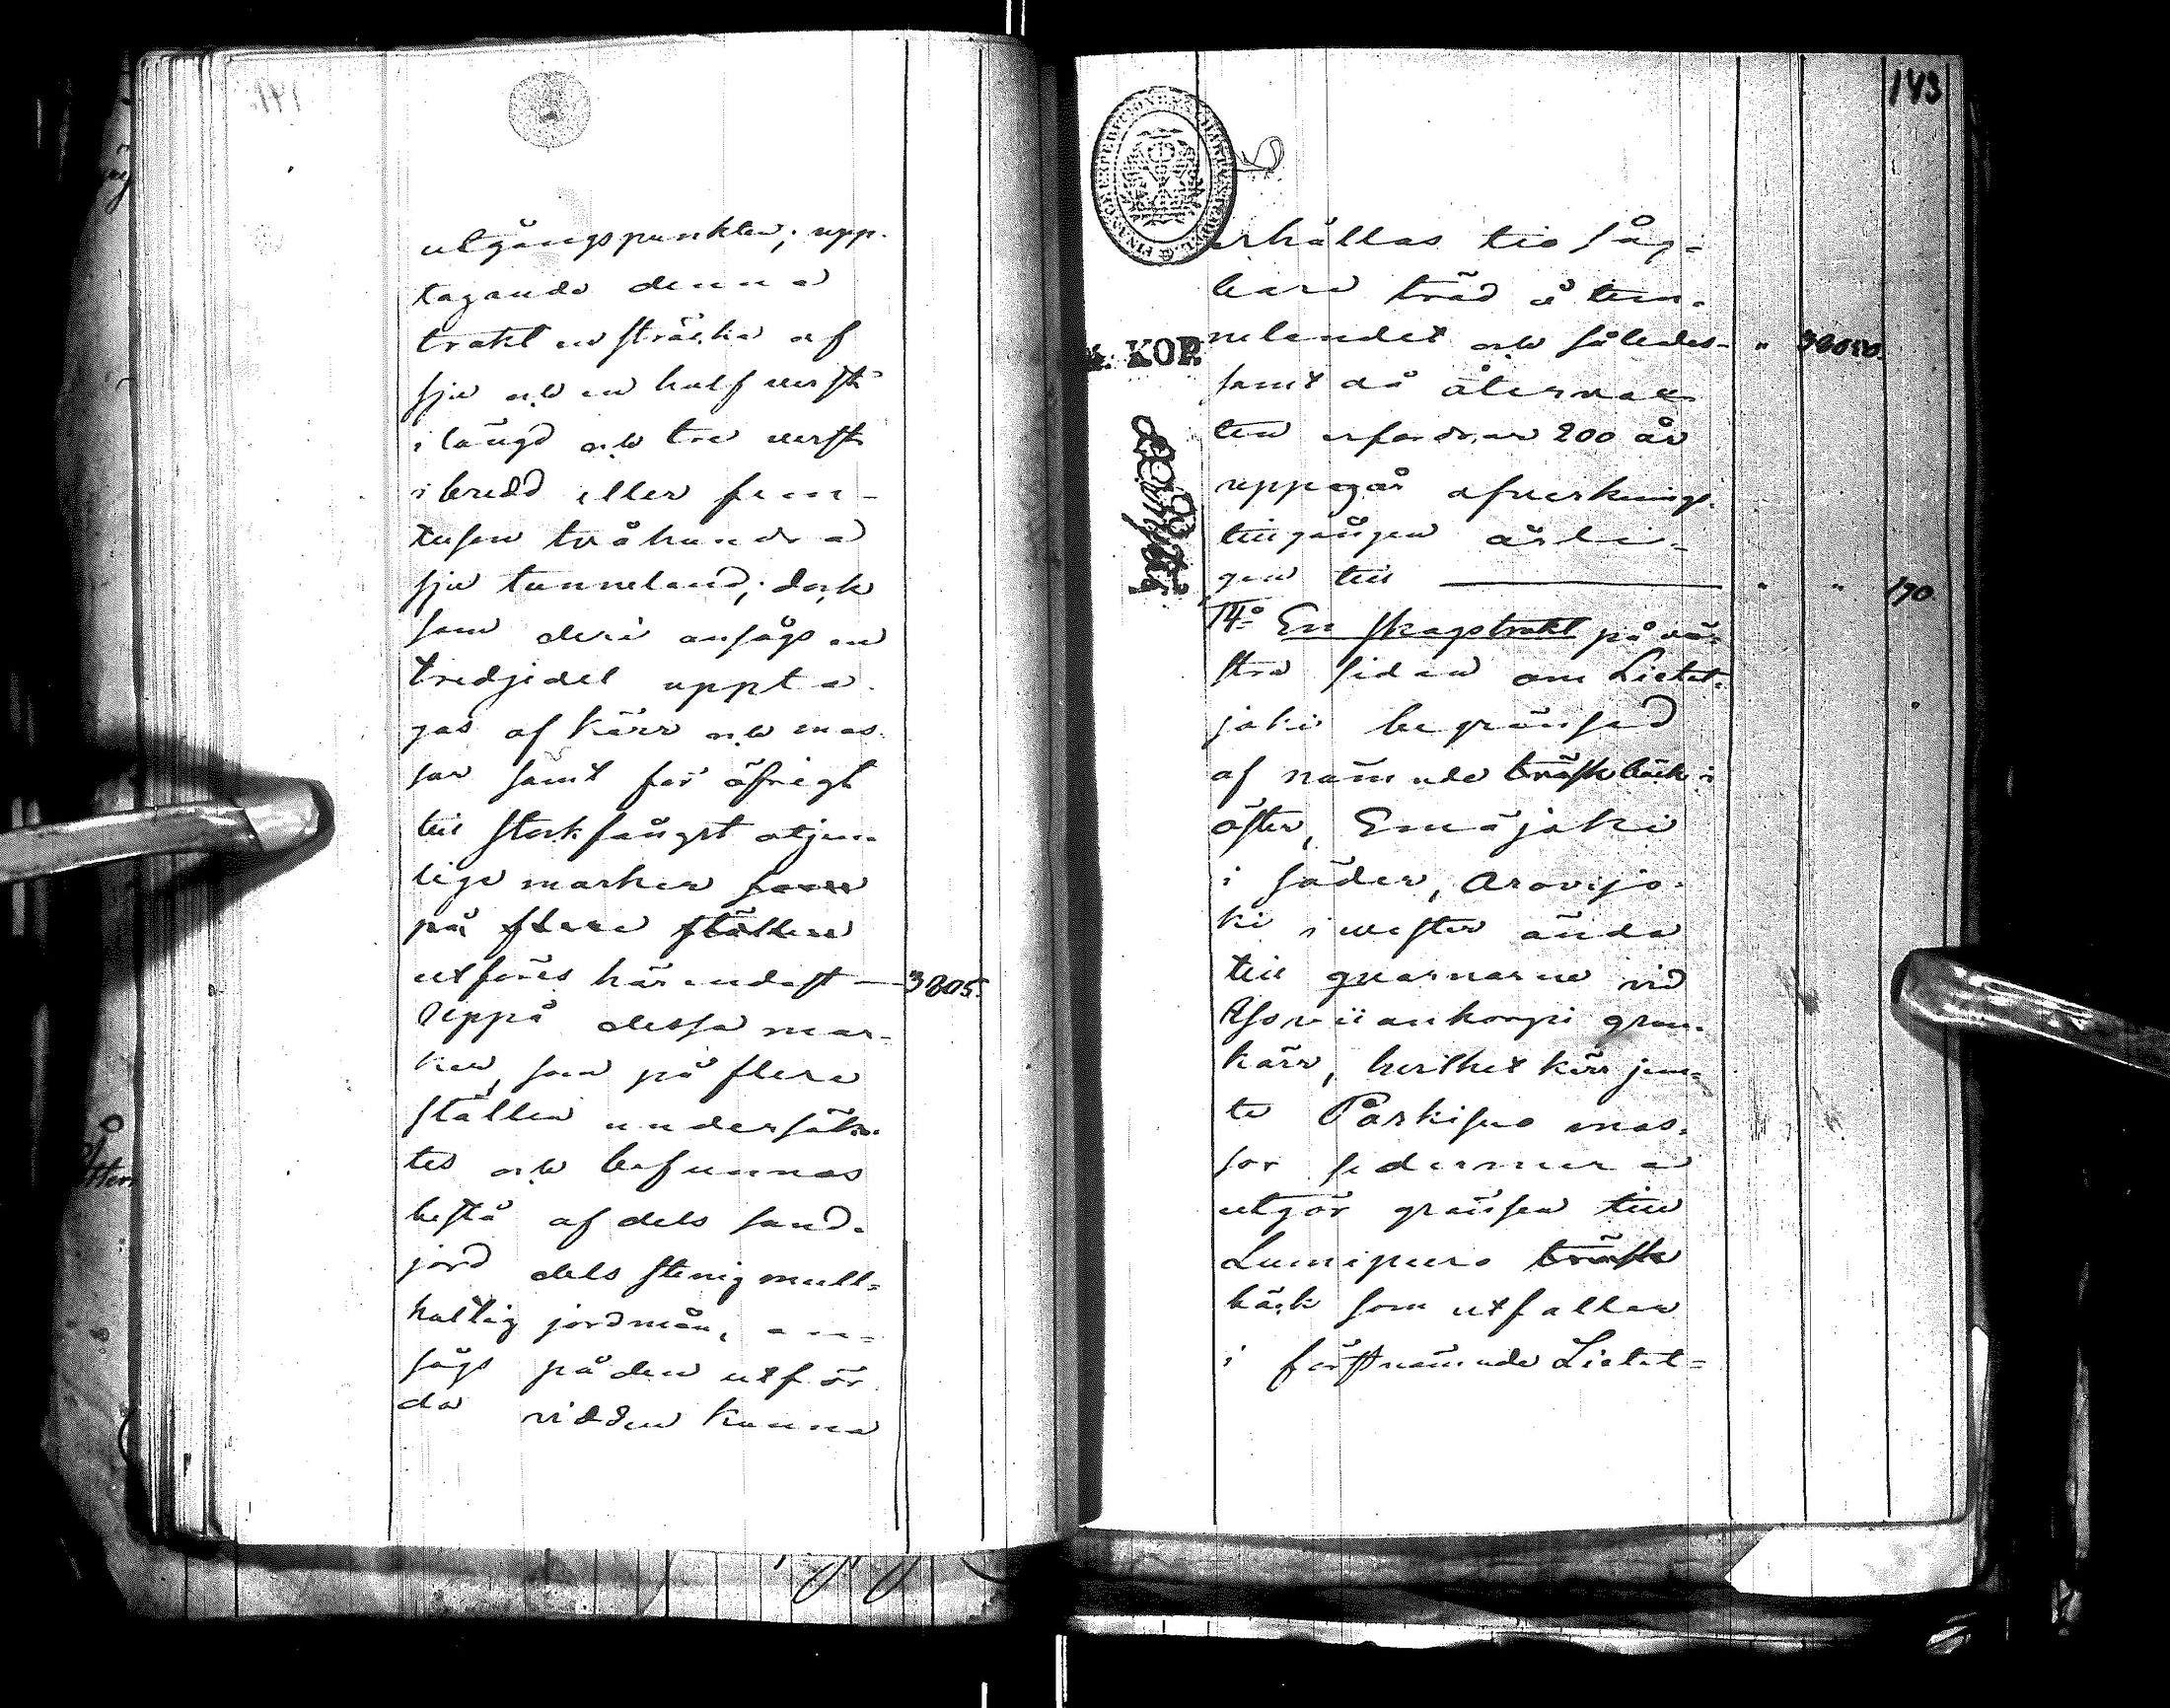 utgångspunkten; upp-
tagande denna
trakt en sträcka af
sju och en half verst
i längd och tre verst
i bredd eller fem-
tusen tvåhundra
sju tunneland; dock
som deri ansågs en
tredjedel uppta-
gas af kärr och mos-
sar samt för öfrigt
till stockfångst otjen-
liga marker som
på flere ställen
utföres här endast — 3805.
Uppå dessa mar-
ker, som på flere
ställen undersök-
tes och befunnos
bestå af dels sand-
jord dels stenig mull-
haltig jordmån, an-
sågs på den utför-
da vidden kunna
143
erhållas tio såg-
bara träd å tun-
nelandet och således " 38050.
samt då återväx-
ten erfordrar 200 år
uppegår afverknings-
tillgången årli-
gen till — " " 190
14º En skogstrakt på vä-
stra sidan om Lietet-
joki begränsad
af nämnde träsk bäck i
öster, Emäjoki
i söder, Arovijo-
ki i wester ända
till qvarnarne vid
gran-
kärr, hvilket kärr jem-
te Parkisuo mos-
sor sedermera
utgör gränsen till
Lumipuro träsk
bäck som utfaller
i förstnämnde Lietet-
KOP.